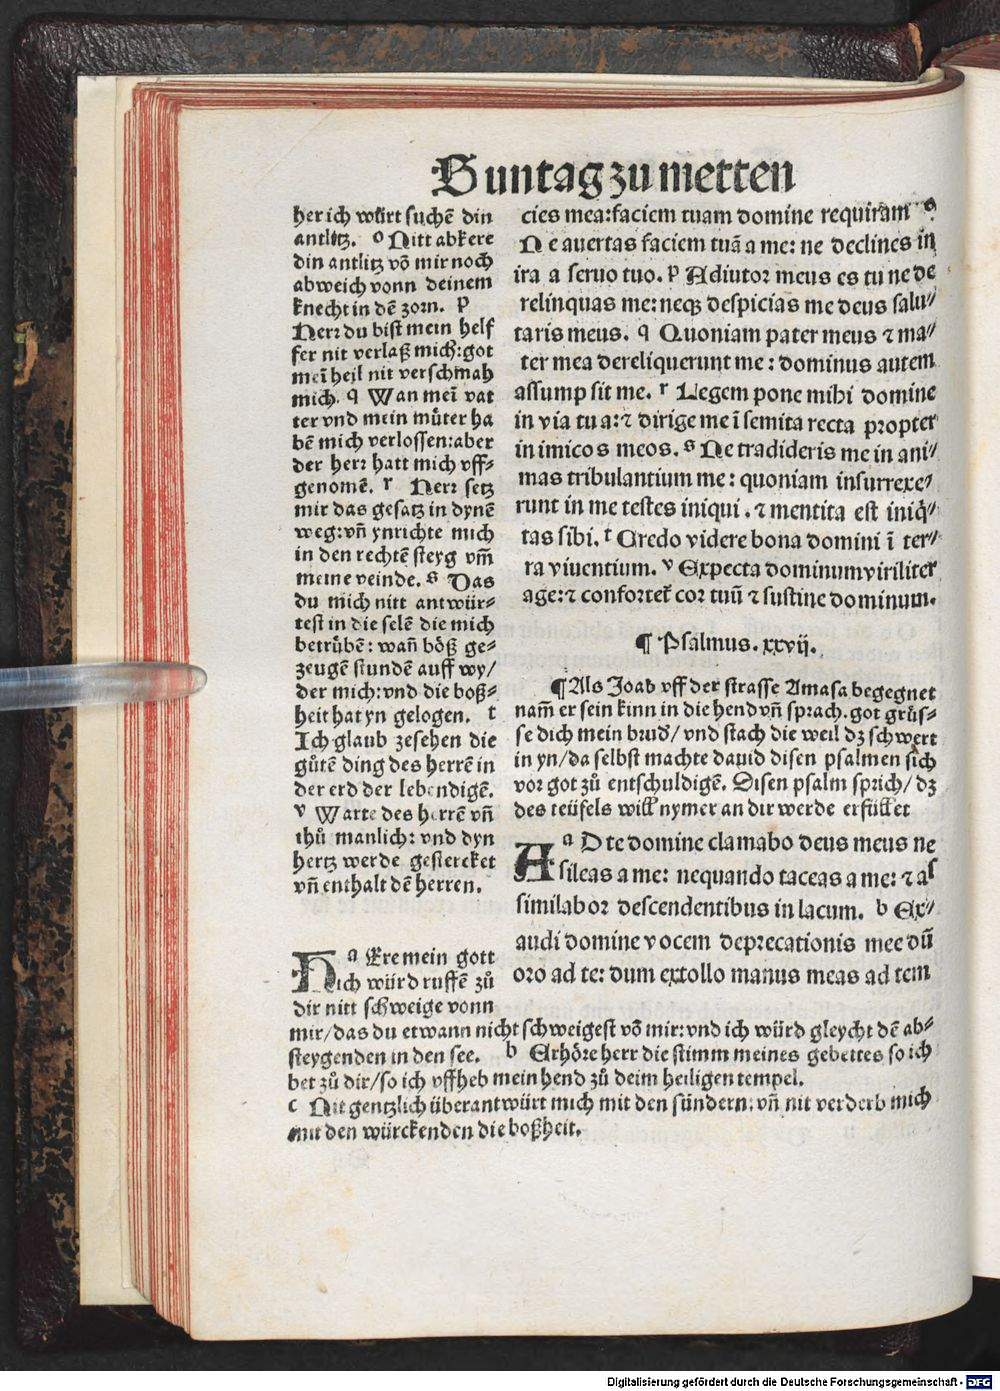 Suntag zu metten
her ich würt suchē din
antlitz. o Nitt abkere
din antlitz vō mir noch
abweich vonn deinem
knecht in dē zorn. p
Herr du bist mein helf
fer nit verlaß mich: got
meī heil nit verschmah
mich. q Wan meī vat
ter vnd mein můter ha
bē mich verlossen: aber
der herr hatt mich vff⸗
genomē. r Herr setz
mir das gesatz in dynē
weg: vn̄ ynrichte mich
in den rechtē steyg vm̄
meine veinde. s Das
du mich nitt antwür⸗
test in die selē die mich
betrůbē: wan̄ böß ge⸗
zeugē stunden auff wy/
der mich: vnd die boß⸗
heit hat yn gelogen. t
Ich glaub zesehen die
gůtē ding des herrē in
der erd der lebendigē.
v Warte des herrē vn̄
thů manlich: vnd dyn
hertz werde gestercket
vn̄ enthalt dē herren.
cies mea: faciem tuam domine requiram o
Ne auertas faciem tuā a me: ne declines in
ira a seruo tuo. p Adiutor meus es tu ne de
relinquas me: neqꝫ despicias me deus salu⸗
taris meus. q Quoniam pater meus ⁊ ma⸗
ter mea dereliquerunt me: dominus autem
assumpsit me. r Legem pone mihi domine
in via tua: ⁊ dirige me ī semita recta propter
inimicos meos. s Ne tradideris me in ani⸗
mas tribulantium me: quoniam insurrexe⸗
runt in me testes iniqui. ⁊ mentita est iniq̇⸗
tas sibi. t Credo videre bona domini ī ter⸗
ra viuentium. v Expecta dominum viriliter
age: ⁊ confortet̄ cor tuū ⁊ sustine dominum.
¶ Psalmus. xxvij.
¶ Als Joab vff der strasse Amasa begegnet
nam̄ er sein kinn in die hend vn̄ sprach. got grůs⸗
se dich mein brud̄/ vnd stach die weil dz schwert
in yn/ da selbst machte dauid disen psalmen sich
vor got zů entschuldigē. Disen psalm sprich/ dz
des teüfels will nymer an dir werde erfüllet
a AD te domine clamabo deus meus ne
sileas a me: nequando taceas a me: ⁊ as
similabor descendentibus in lacum. b Ex⸗
audi domine vocem deprecationis mee dū
oro ad te: dum extollo manus meas ad tem
a HEre mein gott
ich würd ruffē zů
dir nitt schweige vonn
mir/ das du etwann nicht schweigest vō mir: vnd ich würd gleycht dē ab⸗
steygenden in den see. b Erhöre herr die stimm meines gebettes so ich
bet zů dir/ so ich vffheb mein hend zů deim heiligen tempel.
c Nit gentzlich überantwürt mich mit den sündern: vn̄ nit verderb mich
mit den würckenden die boßheit.
Digitalisierung gefördert durch die Deutsche Forschungsgemeinschaft - DFG